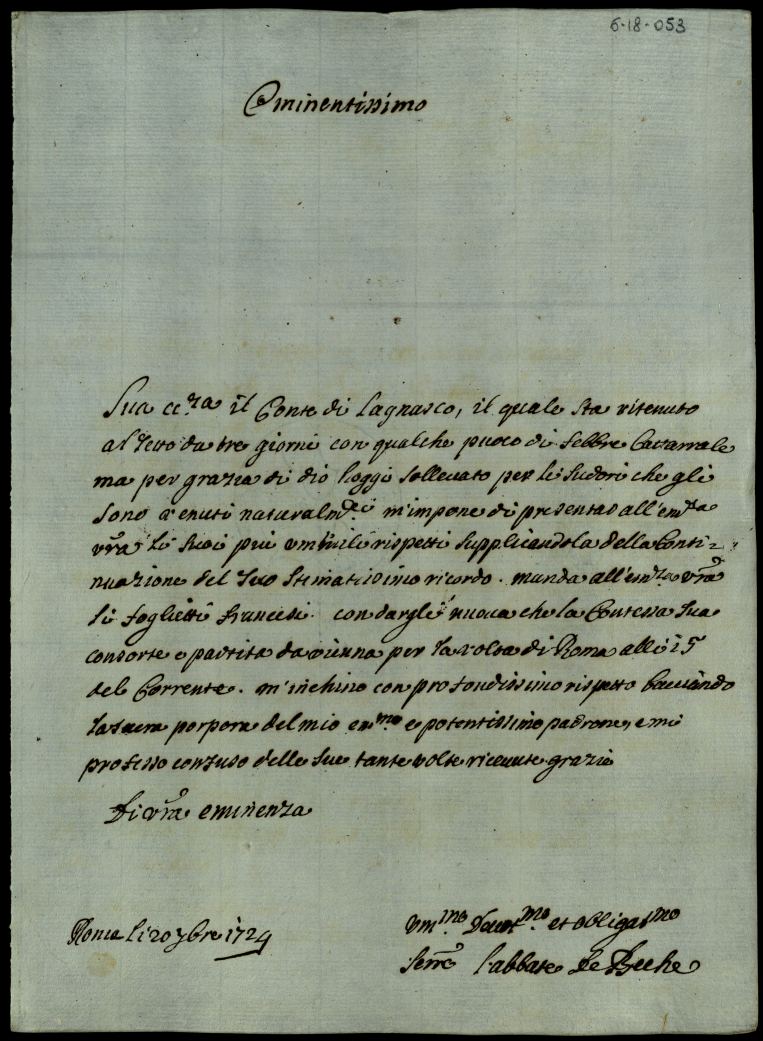 6-18-053
Eminentissimo
Sua ecc.za il Conte di Lagnasco, il quale sta ritenuto
al letto da tre giorni con qualche puoco di febbre Catarrale
ma per grazia di dio hoggi sollevato per li sudori che gli
sono venuti naturalm.te m'impone di presentar all'em.za
vr̃a li suoi piu umili rispetti supplicandola della Conti-
nuazione del suo stimatissimo ricordo. manda all'em.za vr̃a
li foglietti francesi con dargli nuova che la Contessa sua
consorte e partita da vienna per la volta di Roma alli 15
del Corrente. m'inchino con profondissimo rispetto bacciando
la sacra porpora del mio em.mo e potentissimo padrone, e mi
professo confuso delle sue tante volte ricevute grazie
Di vr̃a eminenza
Roma li 20 9bre 1724
um.mo devot.mo et obligat.mo
Serre l'abbate De